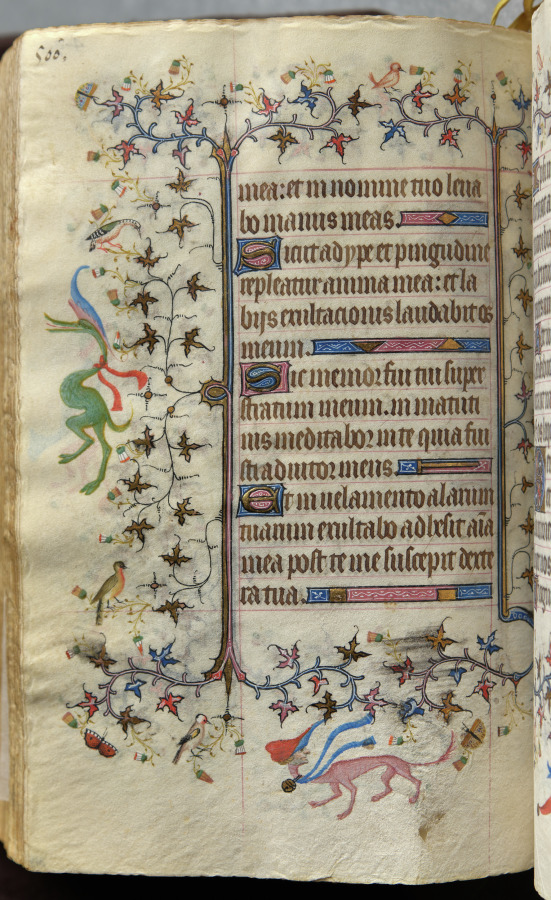 500.
mea: et in nomine tuo leua
bo manus meas.
Sicut adype et pingudine
repleatur anima mea: et la
bijs exultacionis laudabit os
meum.
Sic memor fui tui super
stratum meum. in matuti
nis meditabor in te quia fui
sti adiutor meus.
Et in uelamento alarum
tuarum exultabo adhesit aīa
mea post te me suscepit dexte
ra tua.